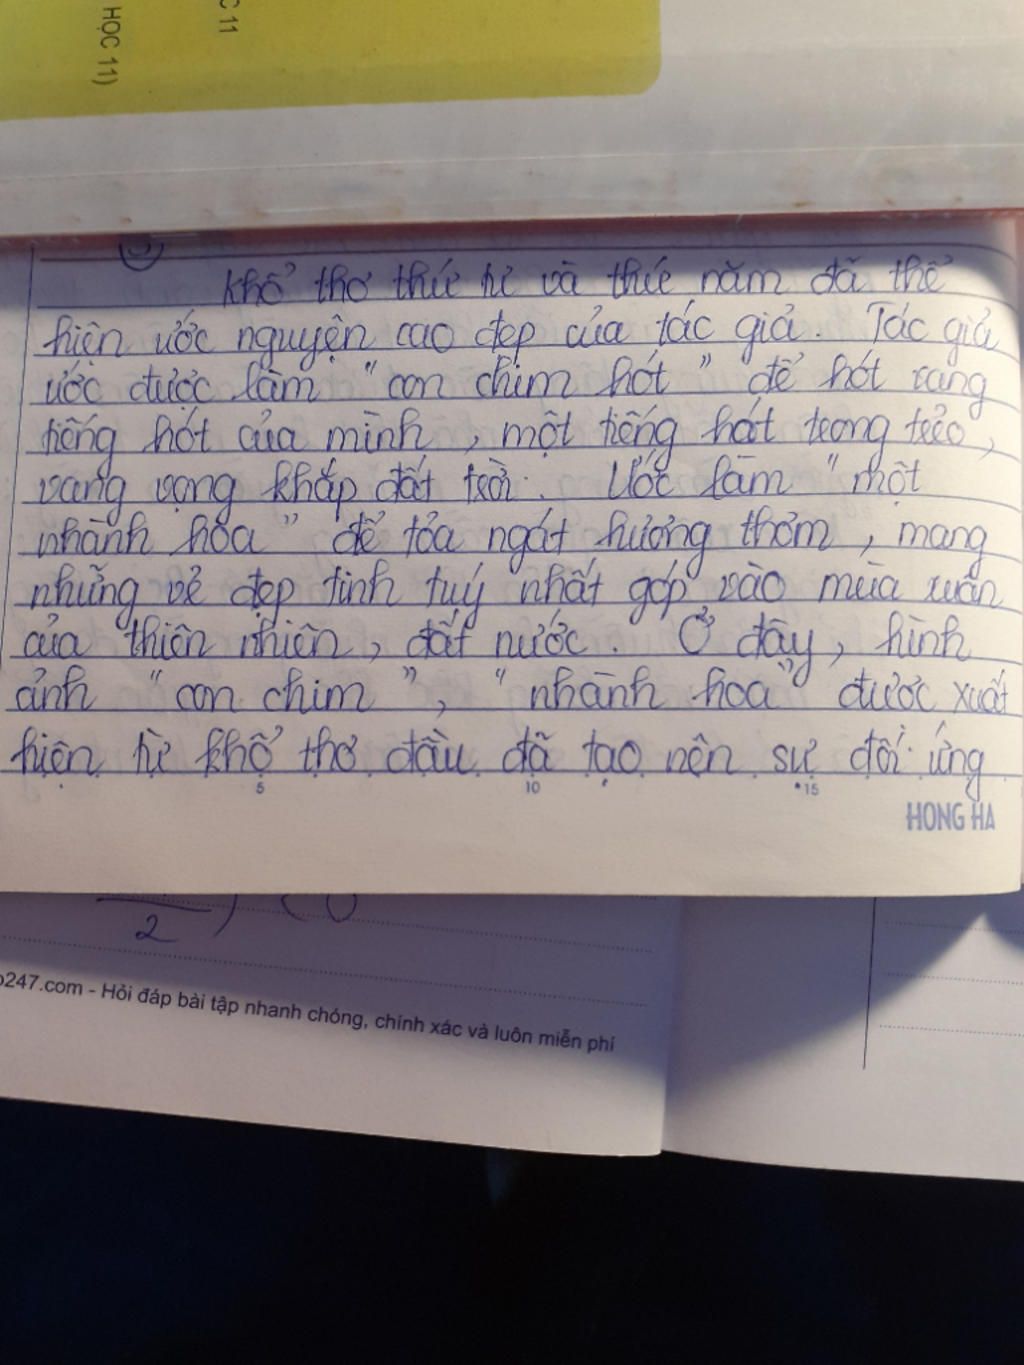 C 11
HỌC 11)
Khổ thơ thứ tư và thứ năm đã thể
hiện ước nguyện cao đẹp của tác giả. Tác giả
ước được làm "con chim hót" để hót vang
tiếng hót của mình, một tiếng hát trong trẻo,
vang vọng khắp đất trời. Ước làm "một
nhành hoa" để tỏa ngát hương thơm, mang
những vẻ đẹp tinh tuý nhất góp vào mùa xuân
của thiên nhiên, đất nước. Ở đây, hình
ảnh "con chim", "nhành hoa" được xuất
hiện từ khổ thơ đầu đã tạo nên sự đối ứng
5 10 15
HONG HA
2
247.com - Hỏi đáp bài tập nhanh chóng, chính xác và luôn miễn phí